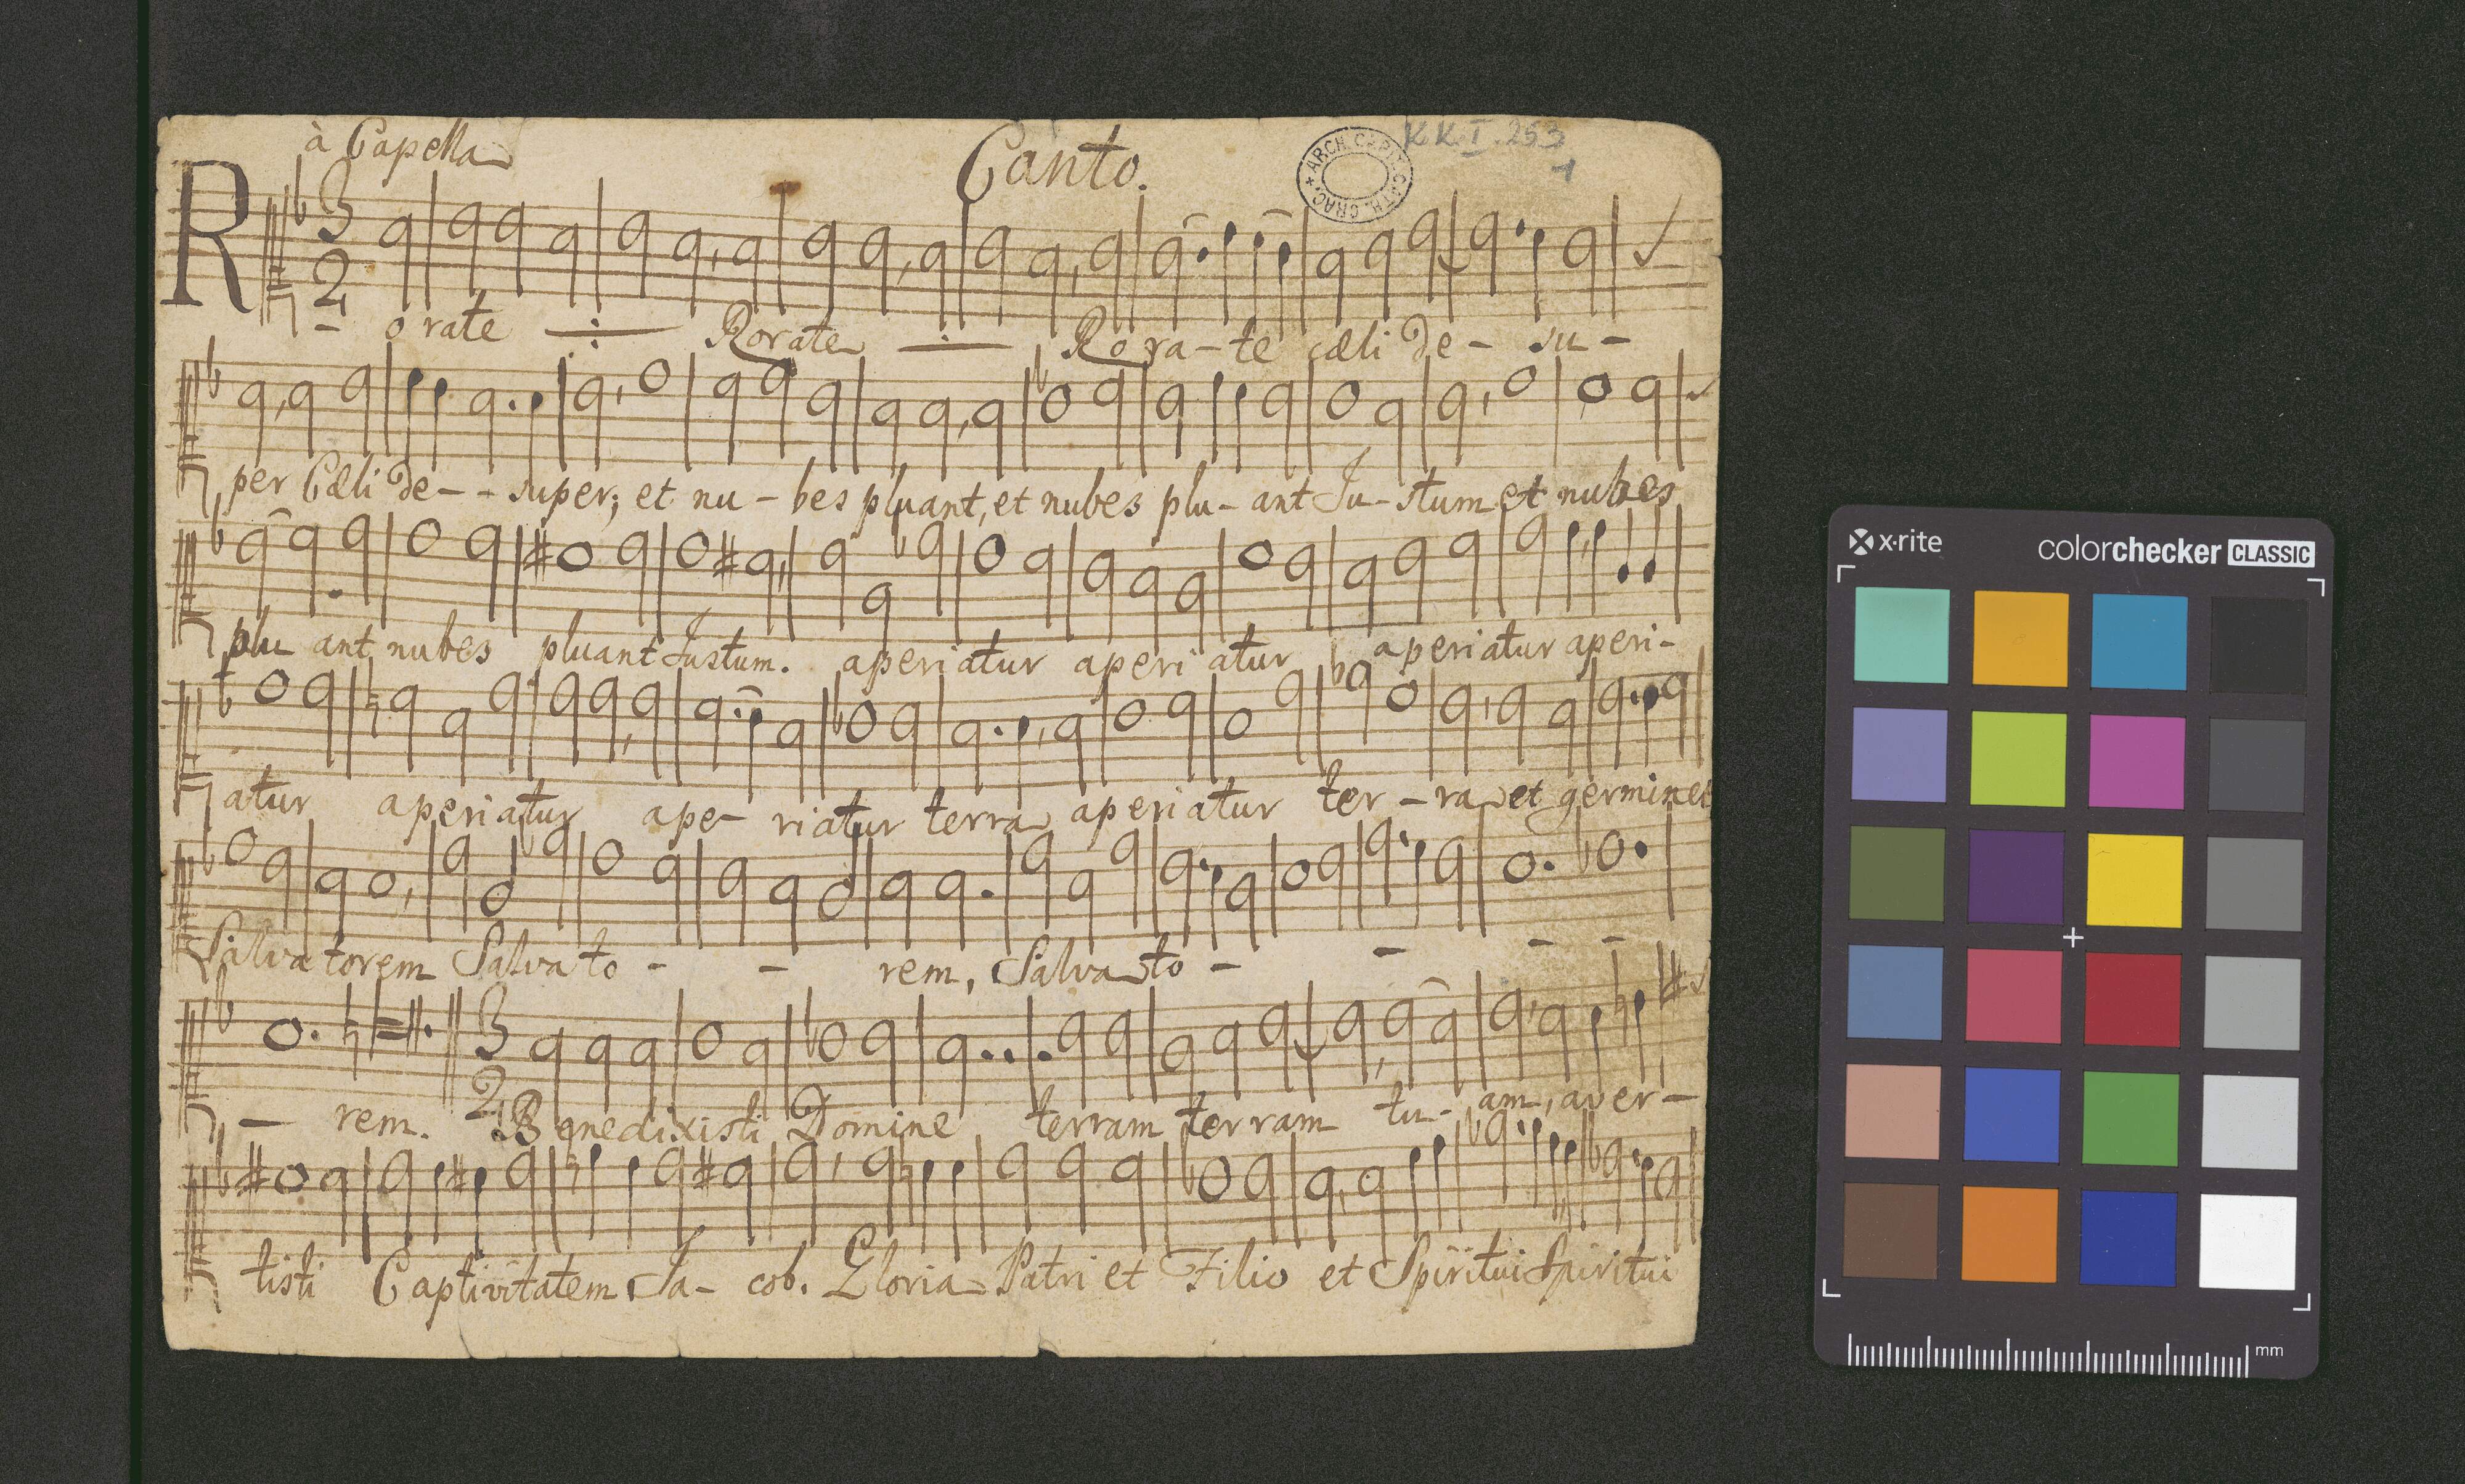 à Capella
Canto.
ARCH. CAPIT. CATH. CRAC.
KK. I. 253
1
3
2
R - orate Rorate Rora - te cæli De - su -
per Cæli de - - super; et nu - bes pluant, et nubes plu - ant Ju - stum et nubes
plu ant nubes pluant Justum. aperiatur aperi atur aperiatur aperi -
atur aperiatur ape - riatur terra aperiatur ter - ra et germinet
Salvatorem Salvato - - rem, Salvato - - - -
3
2
- rem. Benedixisti Domine terram terram tu - am, aver -
tisti Captivitatem Ja - cob. Gloria Patri et Filio et Spiritui Spiritui
x·rite
colorchecker CLASSIC
mm